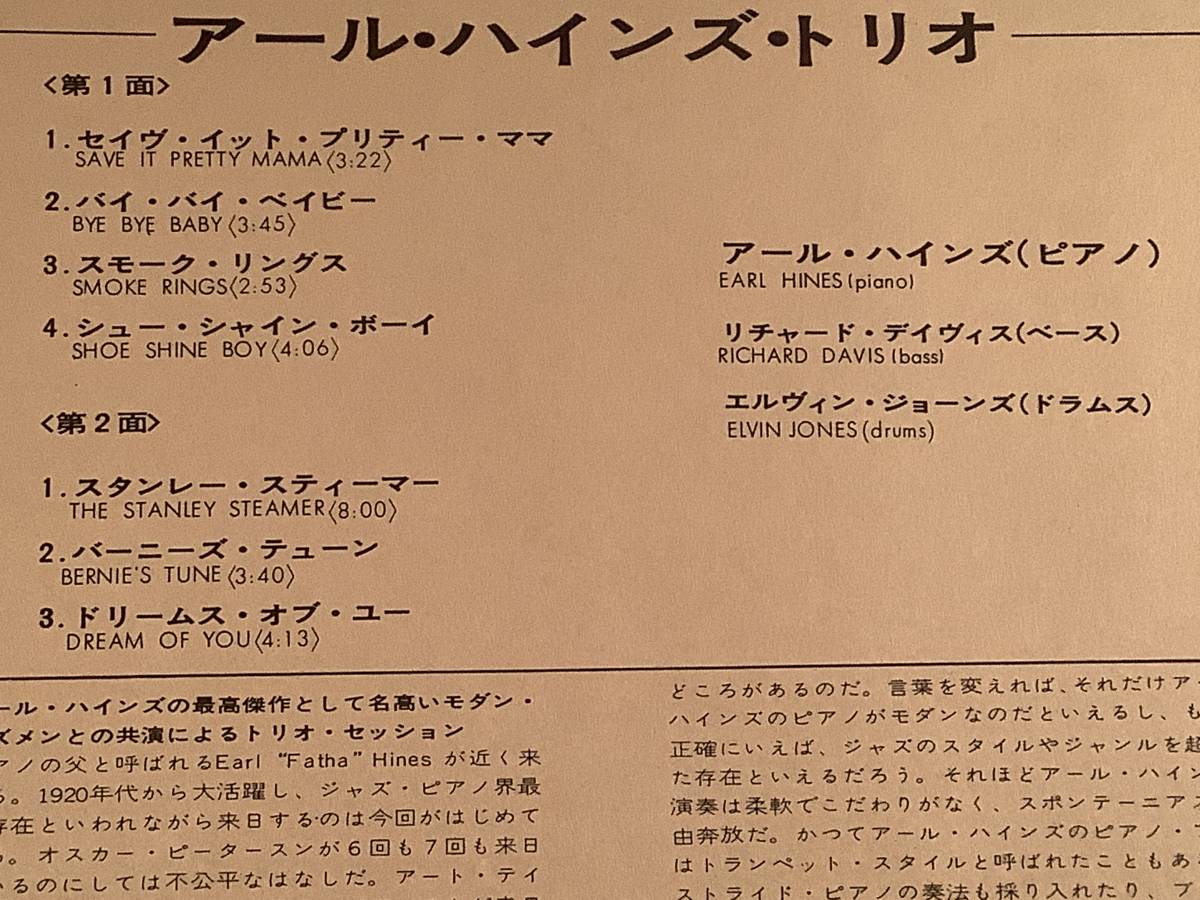 アール・ハインズ・トリオ
〈第1面〉
1.セイヴ・イット・プリティー・ママ
SAVE IT PRETTY MAMA〈3:22〉
2.バイ・バイ・ベイビー
BYE BYE BABY〈3:45〉
3.スモーク・リングス
SMOKE RINGS〈2:53〉
4.シュー・シャイン・ボーイ
SHOE SHINE BOY〈4:06〉
〈第2面〉
1.スタンレー・スティーマー
THE STANLEY STEAMER〈8:00〉
2.バーニーズ・テューン
BERNIE'S TUNE〈3:40〉
3.ドリームス・オブ・ユー
DREAM OF YOU〈4:13〉
アール・ハインズ(ピアノ)
EARL HINES(piano)
リチャード・デイヴィス(ベース)
RICHARD DAVIS(bass)
エルヴィン・ジョーンズ(ドラムス)
ELVIN JONES(drums)
ール・ハインズの最高傑作として名高いモダン・
ズメンとの共演によるトリオ・セッション
アノの父と呼ばれるEarl “Fatha” Hines が近く来
る。1920年代から大活躍し、ジャズ・ピアノ界最
存在といわれながら来日するのは今回がはじめて
る。オスカー・ピータースンが6回も7回も来日
いるのにしては不公平なはなしだ。アート・テイ
どころがあるのだ。言葉を変えれば、それだけアー
ハインズのピアノがモダンなのだといえるし、も
正確にいえば、ジャズのスタイルやジャンルを超
た存在といえるだろう。それほどアール・ハイン
演奏は柔軟でこだわりがなく、スポンテーニアス
由奔放だ。かつてアール・ハインズのピアノ・
はトランペット・スタイルと呼ばれたこともあ
ストライド・ピアノの奏法も採り入れたり、ブ